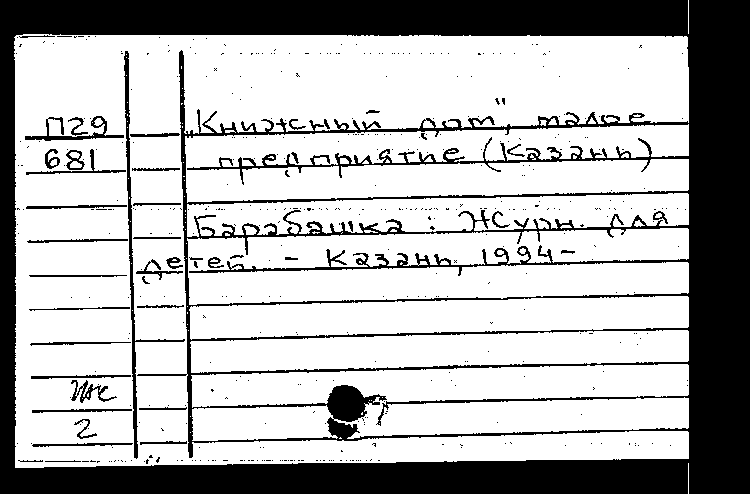 П29 "Книжный дом", малое
681 предприятие (Казань)
Барабашка : Журн. для
детей. - Казань, 1994-
2